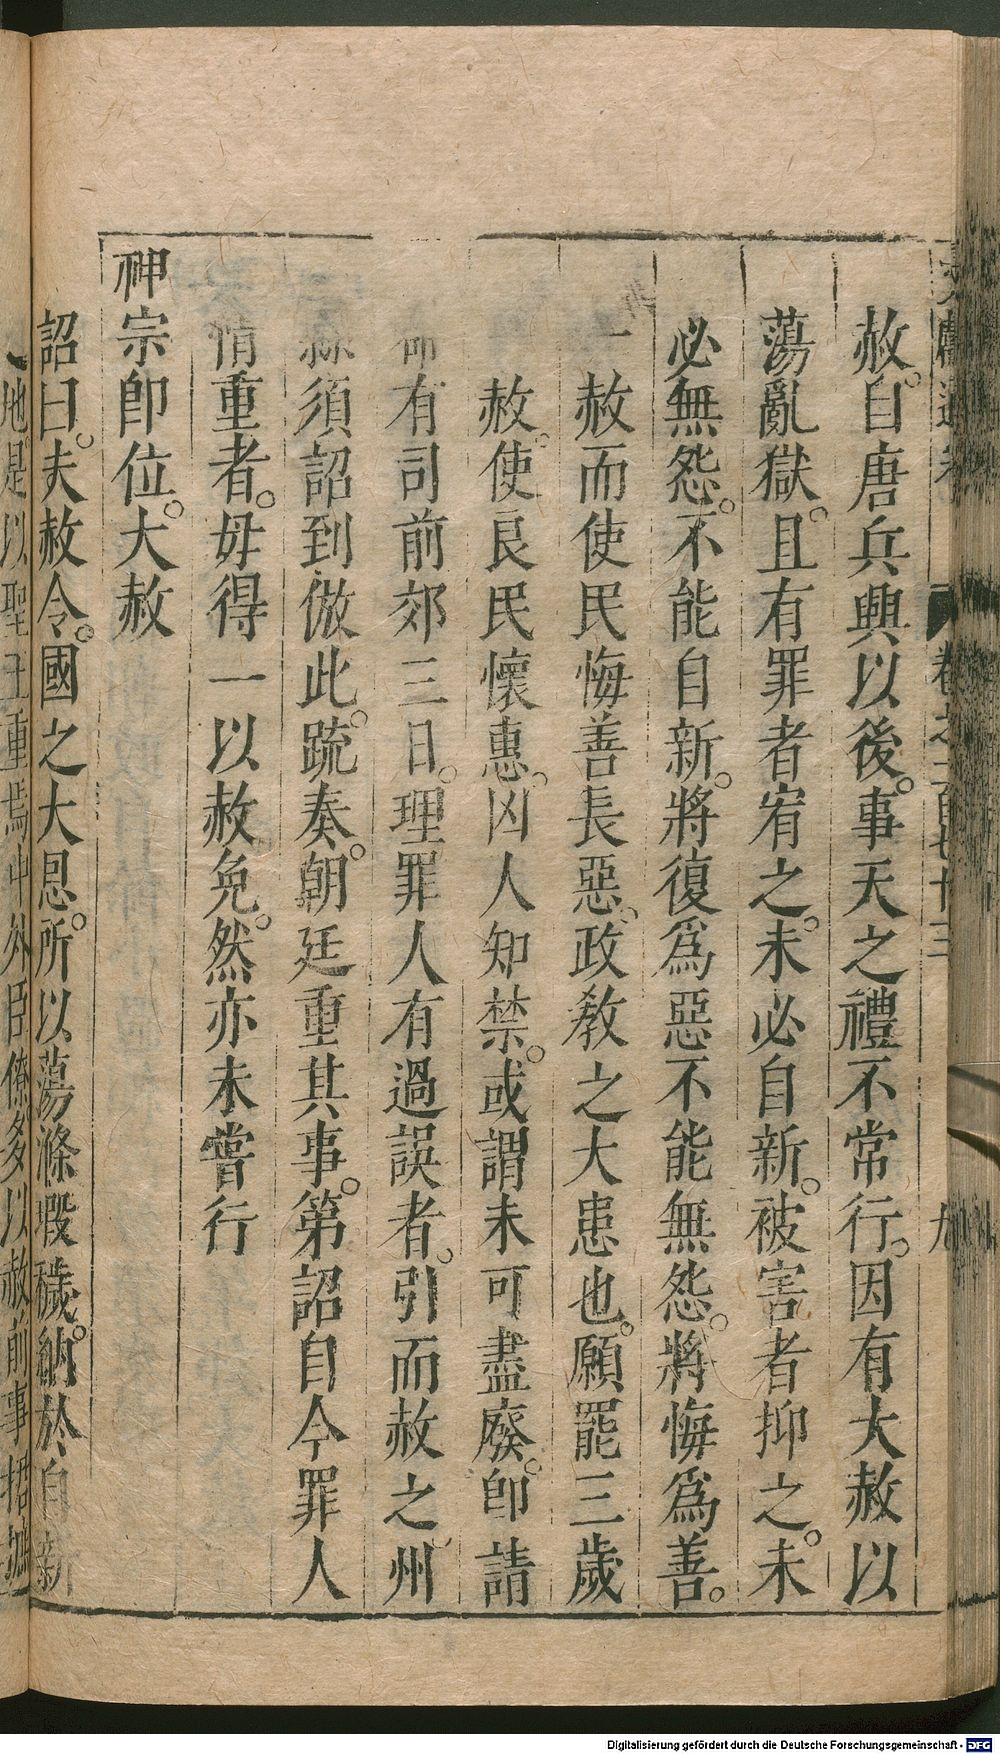 赦自唐兵興以後事天之禮不常行因有大赦以
蕩亂獄且有罪者宥之未必自新被害者抑之未
必無怨不能自新將復爲惡不能無怨將悔爲善
一赦而使民悔善長惡政教之大患也願罷三歲
赦使良民懷惠凶人知禁或謂未可盡廢卽請
命有司前郊三日理罪人有過誤者引而赦之州
縣須詔到倣此疏奏朝廷重其事第詔自今罪人
情重者毋得一以赦免然亦未嘗行
神宗卽位大赦
詔曰夫赦令國之大恩所以蕩滌瑕穢納於自新
地是以聖王重焉中外臣僚多以赦前事捃摭
文獻通考 卷之一百七十三 九
Digitalisierung gefördert durch die Deutsche Forschungsgemeinschaft - DFG